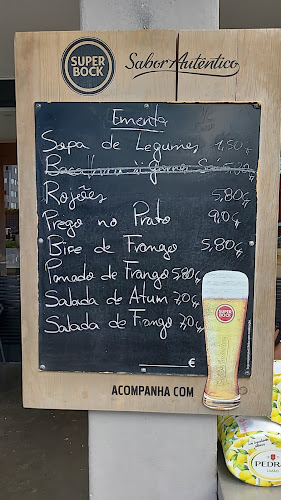 SUPER BOCK
Sabor Autêntico
Ementa
Sopa de Legumes 1,50€
Rojões 5,80€
Prego no Prato 9,0€
Bife de Frango 5,80€
Panado de Frango 5,80€
Salada de Atum 7,0€
Salada de Frango 7,0€
€
SUPER BOCK
ACOMPANHA COM
SUPER BOCK
PEDRAS